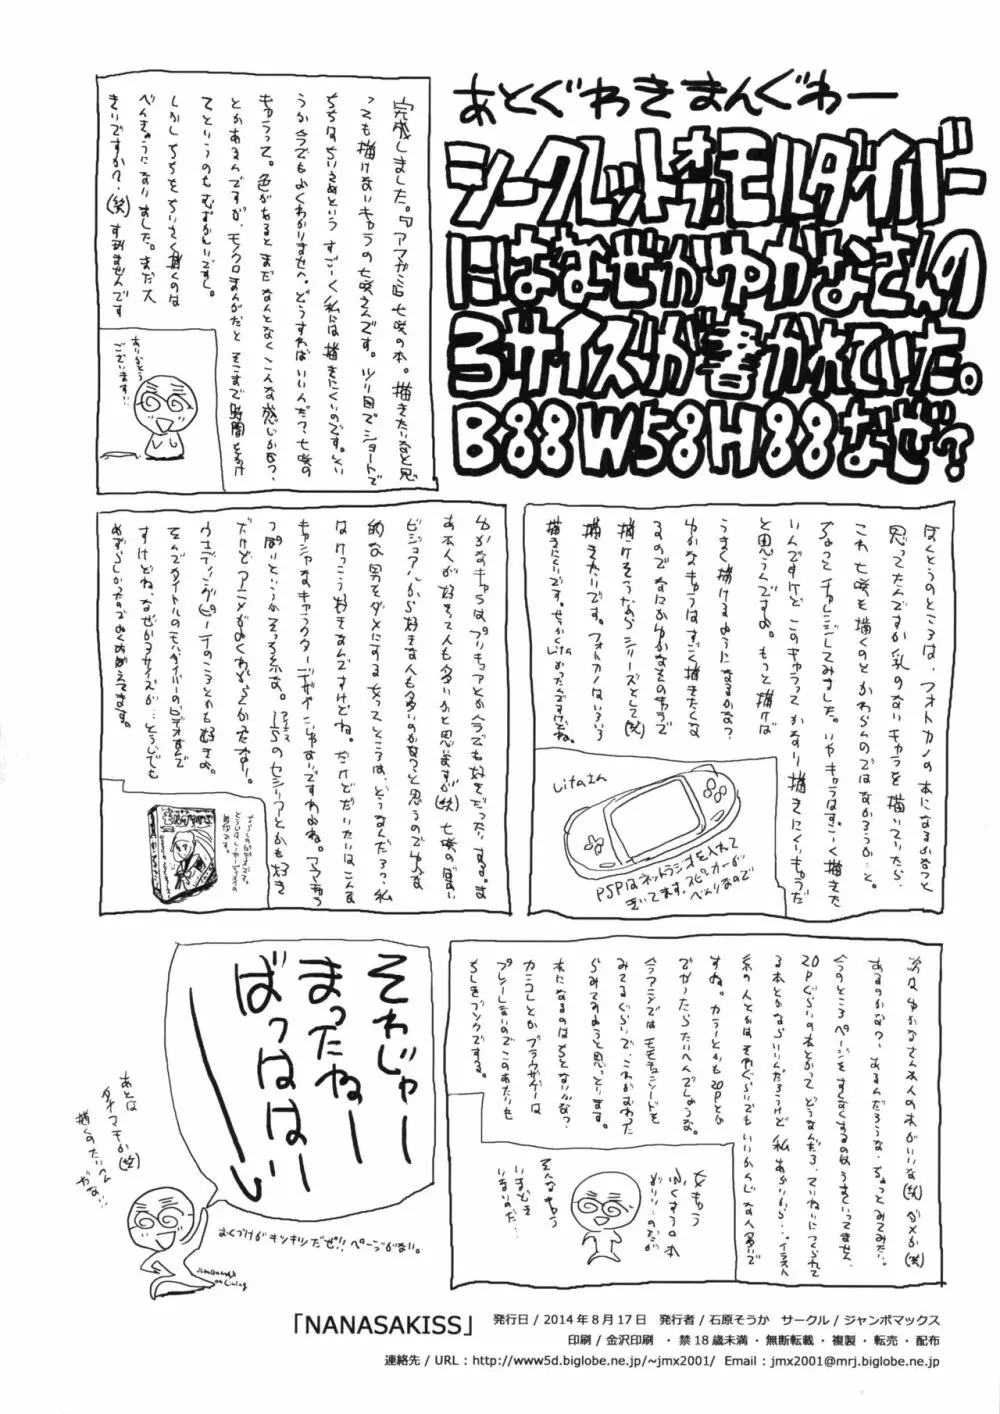 あとぐわきまんぐわー
シークレットオブモルダイバー
にはなぜかゆかなさんの
3サイズが書かれていた。
B88W58H88なぜ?
完成しました。『アマガミ』七咲の本。描きたいなと思
っても描けないキャラの七咲さんです。ツリ目でショートで
ちちはちいさめという すごーく私には描きにくいのです。しい
うか今でもよくわかりませへ。どうすればいいんだ?七咲の
キャラって。色があるとまだなんとなくこんな感じかな?
とかあるんですが、モノクロまんがだと そこまで時間をかけ
てというのもむずかしいですし。
しかし ちちをちいさく描くのは
べんきょうになりました。まだ大
きいですか?(笑)すみませんです
ありがとう
ございます!!
ほんとうのところは、フォトカノの本になるかなっと
思ってたんですが、乳のないキャラを描いていたら、
これ 七咲を描くのとかわらんのではなかろうか…と。
ちょっとチャレンジしてみました。いやキャラはすごく描きた
いんですけど このキャラって かなり描きにくいキャラだ
と思うんですよ。もっと描けば
うまく描けるようになるかな?
ゆかなキャラはすごく描きたくな
るのでなにかゆかなものキャラで
描けそうだならシリーズとして(笑)
描きたいです。フォトカノはいろいろ
描きにくいです。せっかくLitaかったんですけどね。
Litaさん
PSPはネットラジオを入れて
きいてます。スピーカーが
べんりなので
ゆかなキャラはプリキュアとか今でも好きだったりする。ま
あ本人が好きって人も多いかと思いますが(笑)七咲の場合、
ビジュアルから好きな人も多いのかなっと思うのでゆかな
的な男をダメにする女ってところは、どうなんだろ?私
はけっこう好きなんですけどね。だけどだいたいはこんな
キャシャなキャラクターデザインじゃないですわよね。アマあまっ
っぽりというかそっち系な。ISのセシリアとかも好き
だけどアニメがよくわからなかったなー。
ウエディングピーチのころとかも好きよ。
そんでタイトルのモルダイバーのビデオなんで
すけどね、なぜか3サイズが…とうじでも
めずらしかったのでよくおぼえてます。
次は ゆかなさん本人の本がいいな(笑)ダメか(笑)
あるのかな?あるんだろうな、ちょっとみてみたい。
今のところページをすくなくするのはうまくいってません。
20Pぐらいの本とかって どうなんだろ、ていねいにつくられて
る本とかならいいんだろうけど 私 あらいから…イラスト
系の人とかは それぐらいでもいいかんじな人多いで
すね。カラーとかも20Pとか
でかったらたいへんでしょうな。
今アニメではモモキュンソードを
みてるぐらいで、これがおわった
らみてみようと思っています。
本になるのはちとないかな?
カンコレとかブラウザゲーは
プレーしないのでこのあたりも
ちしきブソクでする。
女もう
ふくすうの本
めい!!…のだが
そんなもう
いまどき
いないのだ…
それじゃー
まったねー
ばっははーい
あとは
タナマモか(笑)
描くのたいへん
だな!!
おくづけがキツキツだぜ!! ページがない。
「NANASAKISS」 発行日/2014年8月17日 発行者/石原そうか サークル/ジャンボマックス
印刷/金沢印刷 ・禁18歳未満・無断転載・複製・転売・配布
連絡先/URL:http://www5d.biglobe.ne.jp/~jmx2001/ Email:jmx2001@mrj.biglobe.ne.jp